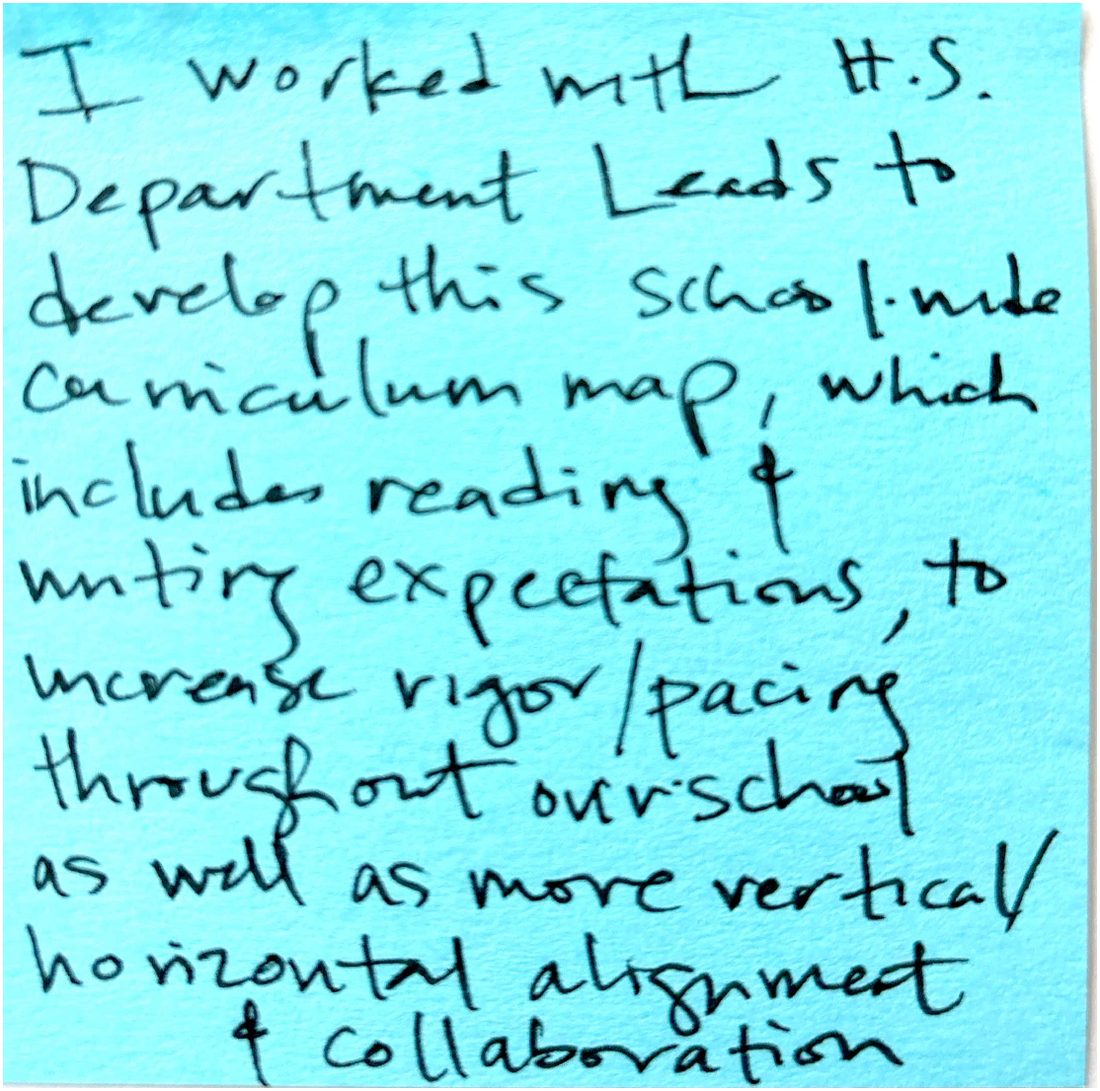 I worked with H.S.
Department Leads to
develop this school-wide
curriculum map, which
includes reading &
writing expectations, to
increase rigor/pacing
throughout our school
as well as more vertical/
horizontal alignment
& collaboration